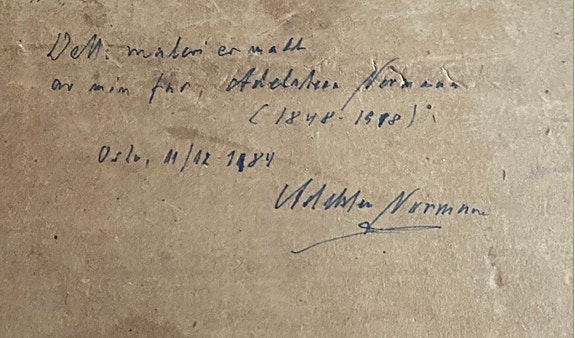 Dett. maleri er malt
av min far, Adelsteen Normann
(1848-1918).
Oslo, 11/12-1984
Adelsten Normann